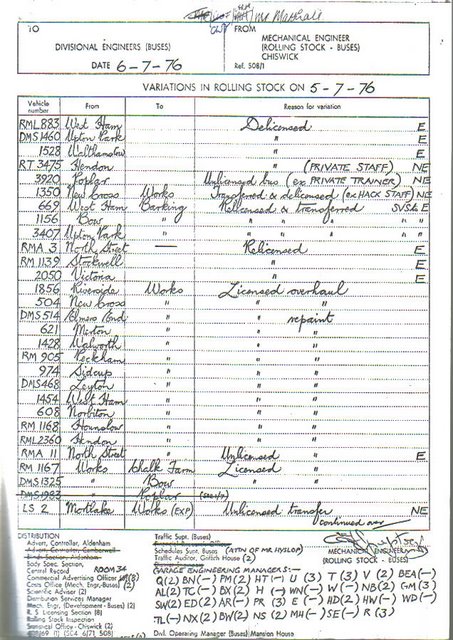 Mr Marshall
TO
FROM
DIVISIONAL ENGINEERS (BUSES)
MECHANICAL ENGINEER
(ROLLING STOCK - BUSES)
CHISWICK
DATE 6-7-76
Ref. 508/1
VARIATIONS IN ROLLING STOCK ON 5-7-76
Vehicle number From To Reason for variation
RML 883 West Ham Delicensed E
DMS 1460 Upton Park " E
1528 Walthamstow " E
RT 3475 Hendon " (PRIVATE STAFF) NE
3920 Poplar Unlicensed bus (ex PRIVATE TRAINER) NE
1350 New Cross Works Transferred & delicensed (ex HACK STAFF) NE
669 West Ham Barking Relicensed & transferred SVS& E
1156 Bow " " " " "
3407 Upton Park " " " " "
RMA 3 North Street — Relicensed E
RM 1139 Stockwell " E
2050 Victoria " E
1856 Riverside Works Licensed overhaul
504 New Cross " " "
DMS 514 Elmers End " " repaint
621 Merton " " "
1428 Walworth " " "
RM 905 Peckham " " "
974 Sidcup " " "
DMS 468 Leyton " " "
1454 West Ham " " "
608 Norbiton " " "
RM 1168 Hounslow " " "
RML 2360 Hendon " " "
RMA 11 North Street " Unlicensed " E
RM 1167 Works Chalk Farm Licensed "
DMS 1325 " Bow " "
DMS 1983 " Poplar
LS 2 Mortlake Works (EXP) Unlicensed transfer NE
continued over
DISTRIBUTION
Advert. Controller, Aldenham
Body Spec. Section,
Central Record ROOM 34
Commercial Advertising Officer (8)
Costs Office (Mech. Engr-Buses) (2)
Scrutiny Officer (2)
Distribution Services Manager
Mech. Engr. (Development - Buses) (2)
R. S. Licensing Section (8)
Rolling Stock Inspection
Statistical Office - Chiswick (2)
Traffic Supt. (Buses)
Schedules Supt. Buses (ATTN OF MR. HYSLOP)
Traffic Auditor, Griffith House (2)
MECHANICAL ENGINEER
(ROLLING STOCK - BUSES)
GARAGE ENGINEERING MANAGERS:-
Q(2) BN(-) PM(2) HT(-) U(3) T(3) V(2) BEA(-)
AL(2) TC(-) BX(2) H(-) WN(-) W(-) NB(2) CM(3)
SW(2) ED(2) AR(-) PR(3) E(-) AD(2) HW(-) WD(-)
TL(-) NX(2) BW(2) NS(2) MH(-) SE(-) R(3)
Divl. Operating Manager (Buses) Mansion House